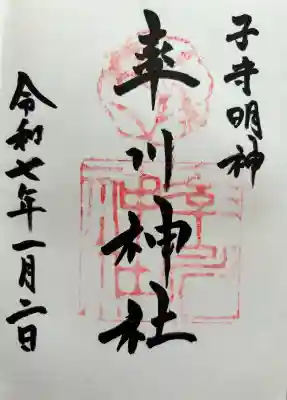 子守明神
率川神社
令和七年一月二日